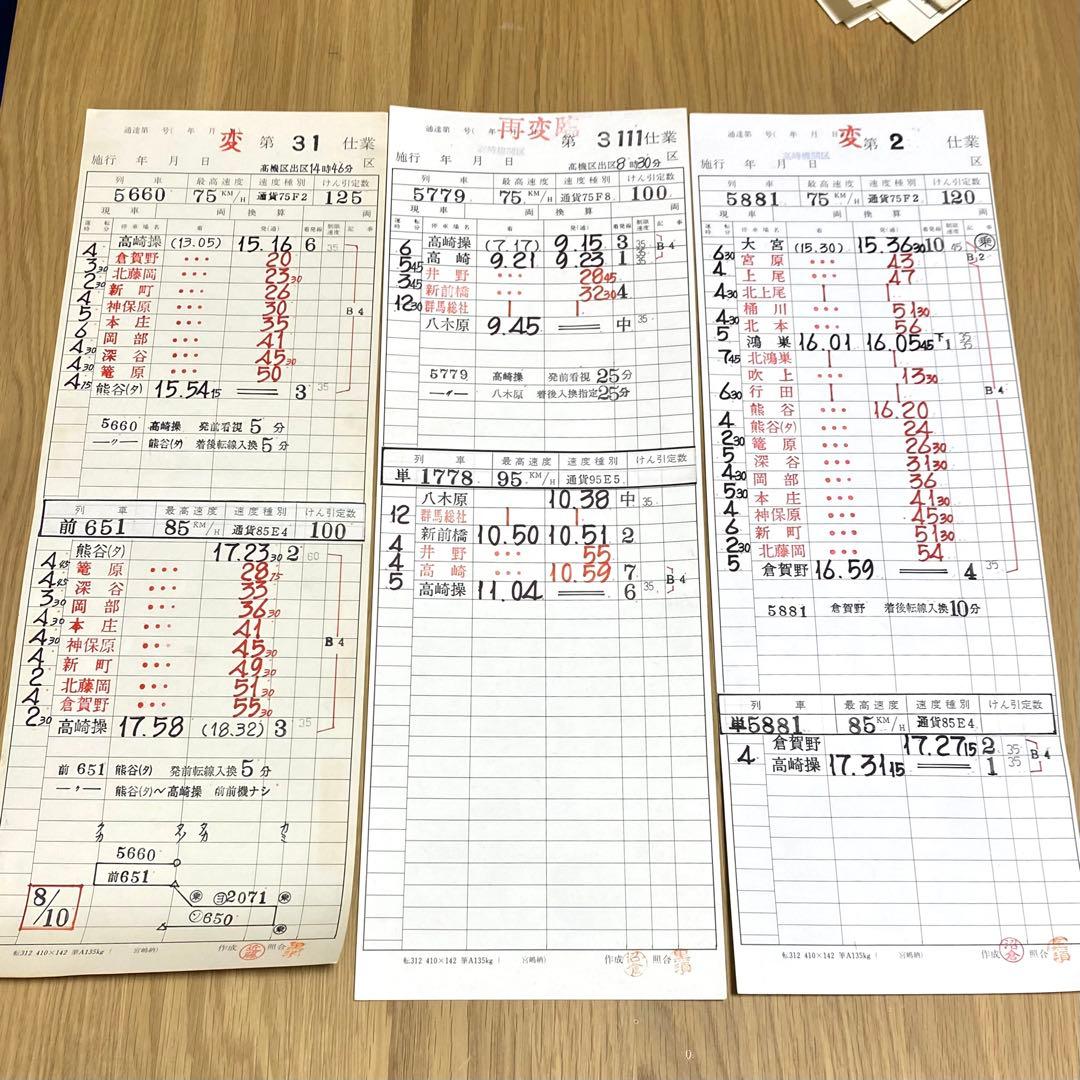 通達第 号( 年 月 変 第 31 仕業
施行 年 月 日 高機区出区14時46分 区
列車 最高速度 速度種別 けん引定数
5660 75KM/H 通貨75F2 125
現車 両 換算 両
運転時分 停車場名 着 発(通) 着発線 制限速度 記事
高崎操 (13.05) 15.16 6 35
4 倉賀野 ••• 20
3 30 北藤岡 ••• 23 30
2 30 新町 ••• 26
4 神保原 ••• 30
5 本庄 ••• 35 B4
6 岡部 ••• 41
4 30 深谷 ••• 45 30
4 30 篭原 ••• 50
4 15 熊谷(タ) 15.54 15 ══ 3 35
5660 高崎操 発前看視5分
—〃— 熊谷(タ) 着後転線入換5分
列車 最高速度 速度種別 けん引定数
前651 85KM/H 通貨85E4 100
熊谷(タ) 17.23 30 2 60
4 45 篭原 ••• 28 15
4 45 深谷 ••• 33
3 30 岡部 ••• 36 30
4 30 本庄 ••• 41
4 30 神保原 ••• 45 30 B4
4 新町 ••• 49 30
2 北藤岡 ••• 51 30
4 倉賀野 ••• 55 30
2 30 高崎操 17.58 (18.32) 3 35
前651 熊谷(タ) 発前転線入換5分
—〃— 熊谷(タ)～高崎操 前前機ナシ
5660
前651
8/10
乗 2071 乗
650 乗
転312 410×142 筆A135kg ( 宮嶋納) 作成 照合
通達第 号( 年 再変臨 第 3111仕業
施行 年 月 日 高機区出区8時30分 区
列車 最高速度 速度種別 けん引定数
5779 75KM/H 通貨75F8 100
現車 両 換算 両
運転時分 停車場名 着 発(通) 着発線 制限速度 記事
高崎操 (7.17) 9.15 3 35 B4
6 高崎 9.21 9.23 1
5 45 井野 ••• 28 45
3 45 新前橋 ••• 32 30 4
群馬総社
12 30 八木原 9.45 ══ 中 35
5779 高崎操 発前看視25分
—〃— 八木原 着後入換指定25分
列車 最高速度 速度種別 けん引定数
単1778 95KM/H 通貨95E5
八木原 10.38 中 35
群馬総社
12 新前橋 10.50 10.51 2
4 井野 ••• 55
4 高崎 ••• 10.59 7 B4
5 高崎操 11.04 ══ 6 35
転312 410×142 筆A135kg ( 宮嶋納) 作成 沼倉 照合 黒須
通達第 号( 年 月 日) 変 第 2 仕業
施行 年 月 日 高崎機関区 区
列車 最高速度 速度種別 けん引定数
5881 75KM/H 通貨75F2 120
現車 両 換算 両
運転時分 停車場名 着 発(通) 着発線 制限速度 記事
大宮 (15.30) 15.36 30 10 45 乗
6 30 宮原 ••• 43 B2
4 上尾 ••• 47
北上尾
4 30 桶川 ••• 51 30
4 30 北本 ••• 56
5 鴻巣 16.01 16.05 45 下1 35
北鴻巣
7 45 吹上 ••• 13 30
行田 B4
6 30 熊谷 ••• 16.20
4 熊谷(タ) ••• 24
2 30 篭原 ••• 26 30
5 深谷 ••• 31 30
4 30 岡部 ••• 36
5 30 本庄 ••• 41 30
4 神保原 ••• 45 30
6 新町 ••• 51 30
2 30 北藤岡 ••• 54
5 倉賀野 16.59 ══ 4 35
5881 倉賀野 着後転線入換10分
列車 最高速度 速度種別 けん引定数
単5881 85KM/H 通貨85E4
倉賀野 17.27 15 2 35 B4
4 高崎操 17.31 15 1 35
転312 410×142 筆A135kg ( 宮嶋納) 作成 沼倉 照合